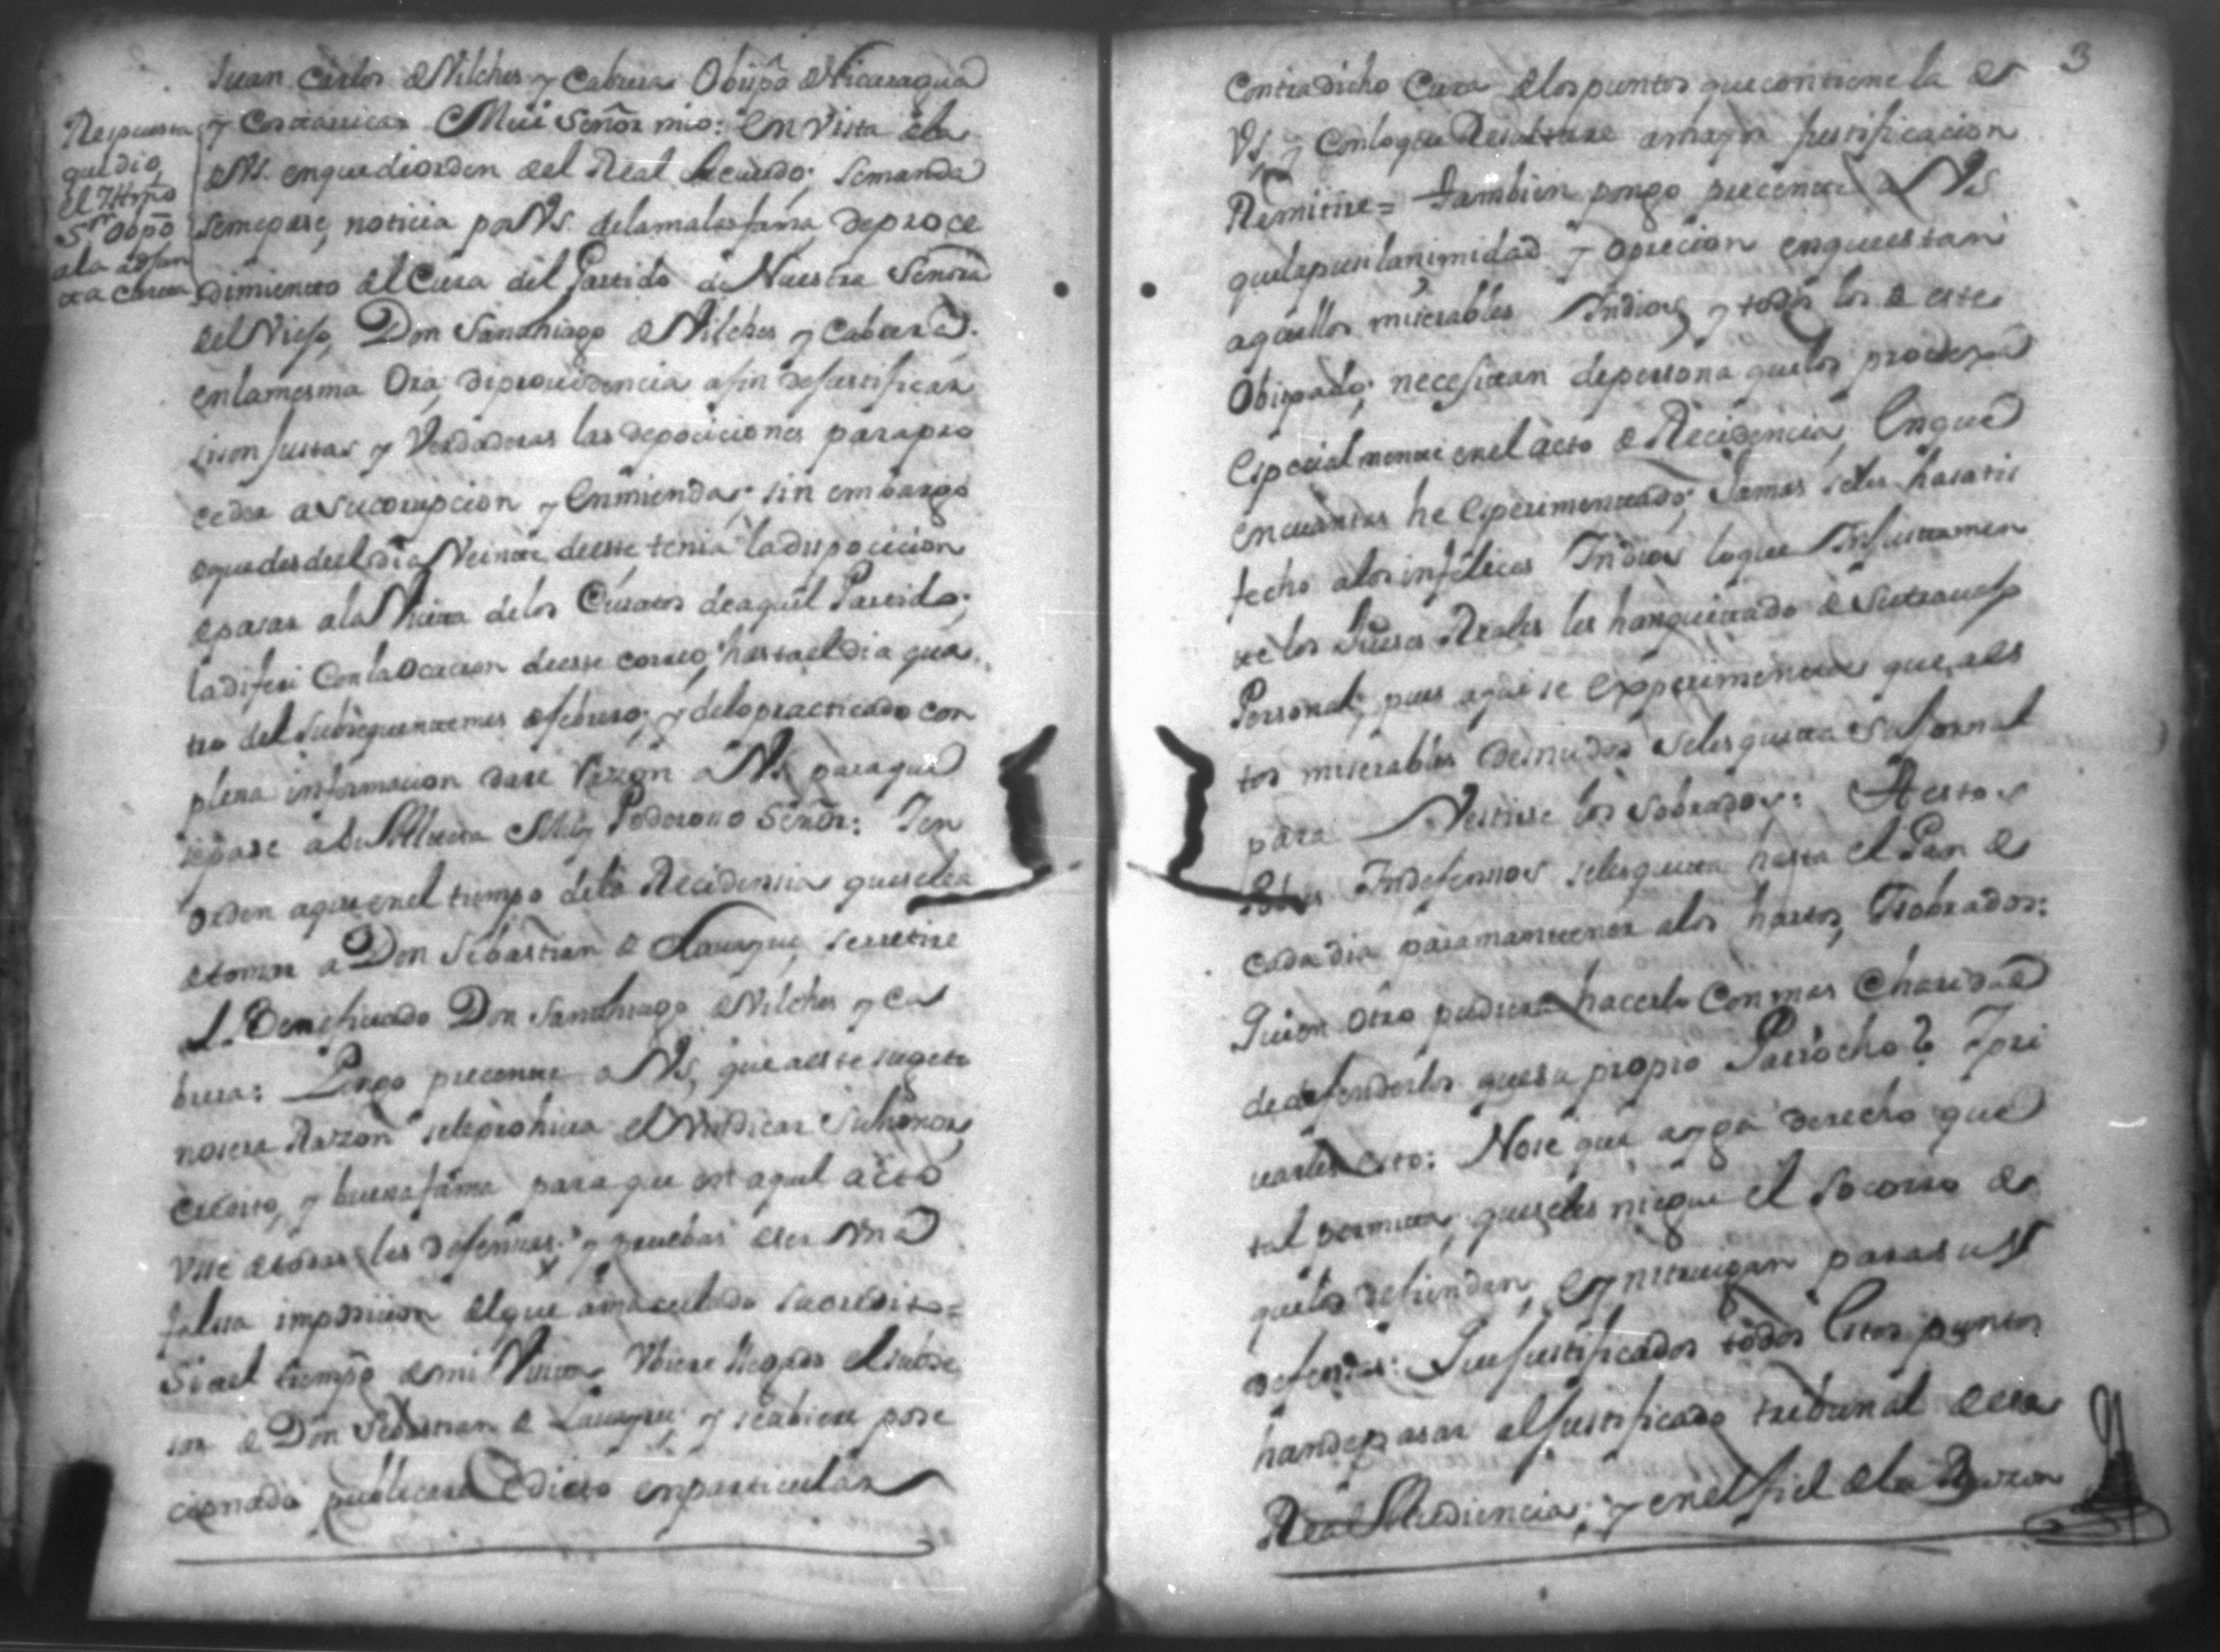 Respuesta
que dio
el Illmo
Sr Obpo
a la adjun
ta carta
Juan Carlos de Vilches y Cabrera Obispo de Nicaragua
y Costarrica Mui Señor mio: En Vista de la
de VS. en que de orden del Real Acuerdo; se manda
se me pase, noticia por VS. de la mala fama de proce
dimiento del Cura del Partido de Nuestra Señora
del Viejo, Don Santhiago de Vilches y Cabrera.
en la mesma Ora, di providencia a fin de justificar
si son justas y Verdaderas las depociciones para pro
ceder a su corrupcion y Enmienda; sin embargo
de que desde el dia Veinte de este, tenia la dispocicion
de pasar a la Vicita de los Curatos de aquel Partido;
la diferi con la Ocacion de este correo, hasta el dia qua
tro del subsequente mes de febrero; y de lo practicado con
plena informacion dare Razon a VS. para que
se pase a Su Alteza Muy Poderoso Señor: En
orden a que en el tiempo de la Recidencia que se le a
de tomar a Don Sebastian de se retire
el Beneficiado Don Santhiago de Vilches y Ca
brera: Pongo precente a VS, que a este sugeto
no sera Razon se le prohiva el Vindicar su honor,
credito, y buena fama para que en aquel acto
Vse de todas las defensas y pruebas de ser Vna
falsa imposicion del que a maculado su credito=
Si a el tiempo de mi Vicita Vbiere llegado el subce
sor de Don Sebastian de y se abiere pose
cionado publicare Edicto en particular
3
Contra dicho Cura de los puntos que contiene la de
VS, y con lo que Resultare a mayor justificacion
Remitire= Tambien pongo precente a VS
que la pusilanimidad y oprecion en que estan
aquellos miserables Indios, y todos los de este
Obispado; necesitan de persona que los proteja
Especialmente en el acto de Recidencia, En que
en cuantas he Esperimentado; Jamas se les ha satis
fecho a los infelices Indios lo que Injustamen
te los Jueses Reales les han quitado de su travajo
Personal; pues aqui se Experimenta que, a es
tos miserables desnudos se les quita su Jornal
para Vestirse los sobrados: A estos
Pobres Indefensos se les quita hasta el Pan de
cada dia para mantener a los hartos, y sobrados:
Quien Otro pudiera hacerlo con mas Charidad
de defenderlos que su propio Parrocho? Y pri
varles esto: No se que ayga derecho que
tal permita, que se les niegue el socorro de
que los defiendan, e ynstruigan para sus
defensas: Justificados todos Estos puntos
han de pasar al justificado tribunal de esa
Real Audiencia; y en el fiel de la Razon